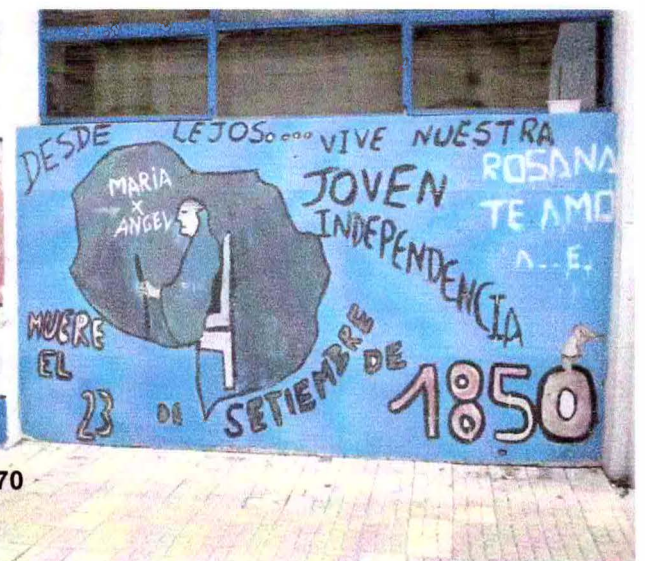 DESDE LEJOS.... VIVE NUESTRA
JOVEN
INDEPENDENCIA
MARIA
X
ANGEL
ROSANA
TE AMO
A..E.
MUERE
EL
23 DE SETIEMBRE DE 1850
70